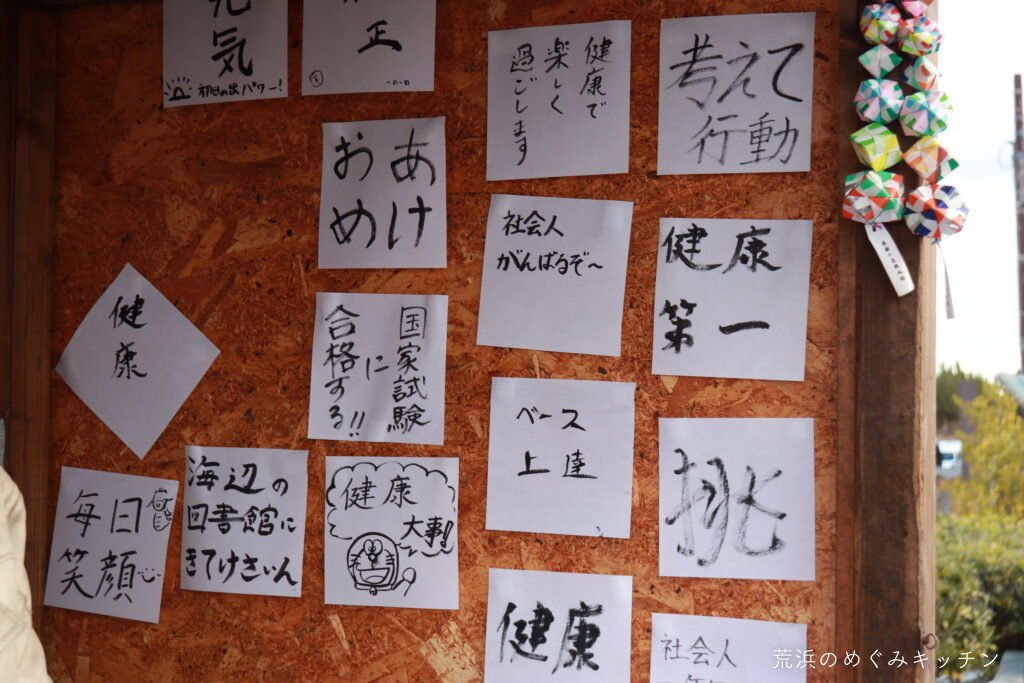 元気
初日の出パワー!
正
一日一日
健康で
楽しく
過ごします
考えて
行動
あけ
おめ
社会人
がんばるぞ〜
健康
第一
健康
国家試験
に
合格する!!
ベース
上達
挑
毎日
笑顔
海辺の
図書館に
きてけさいん
健康
大事!
健康
社会人
荒浜のめぐみキッチン